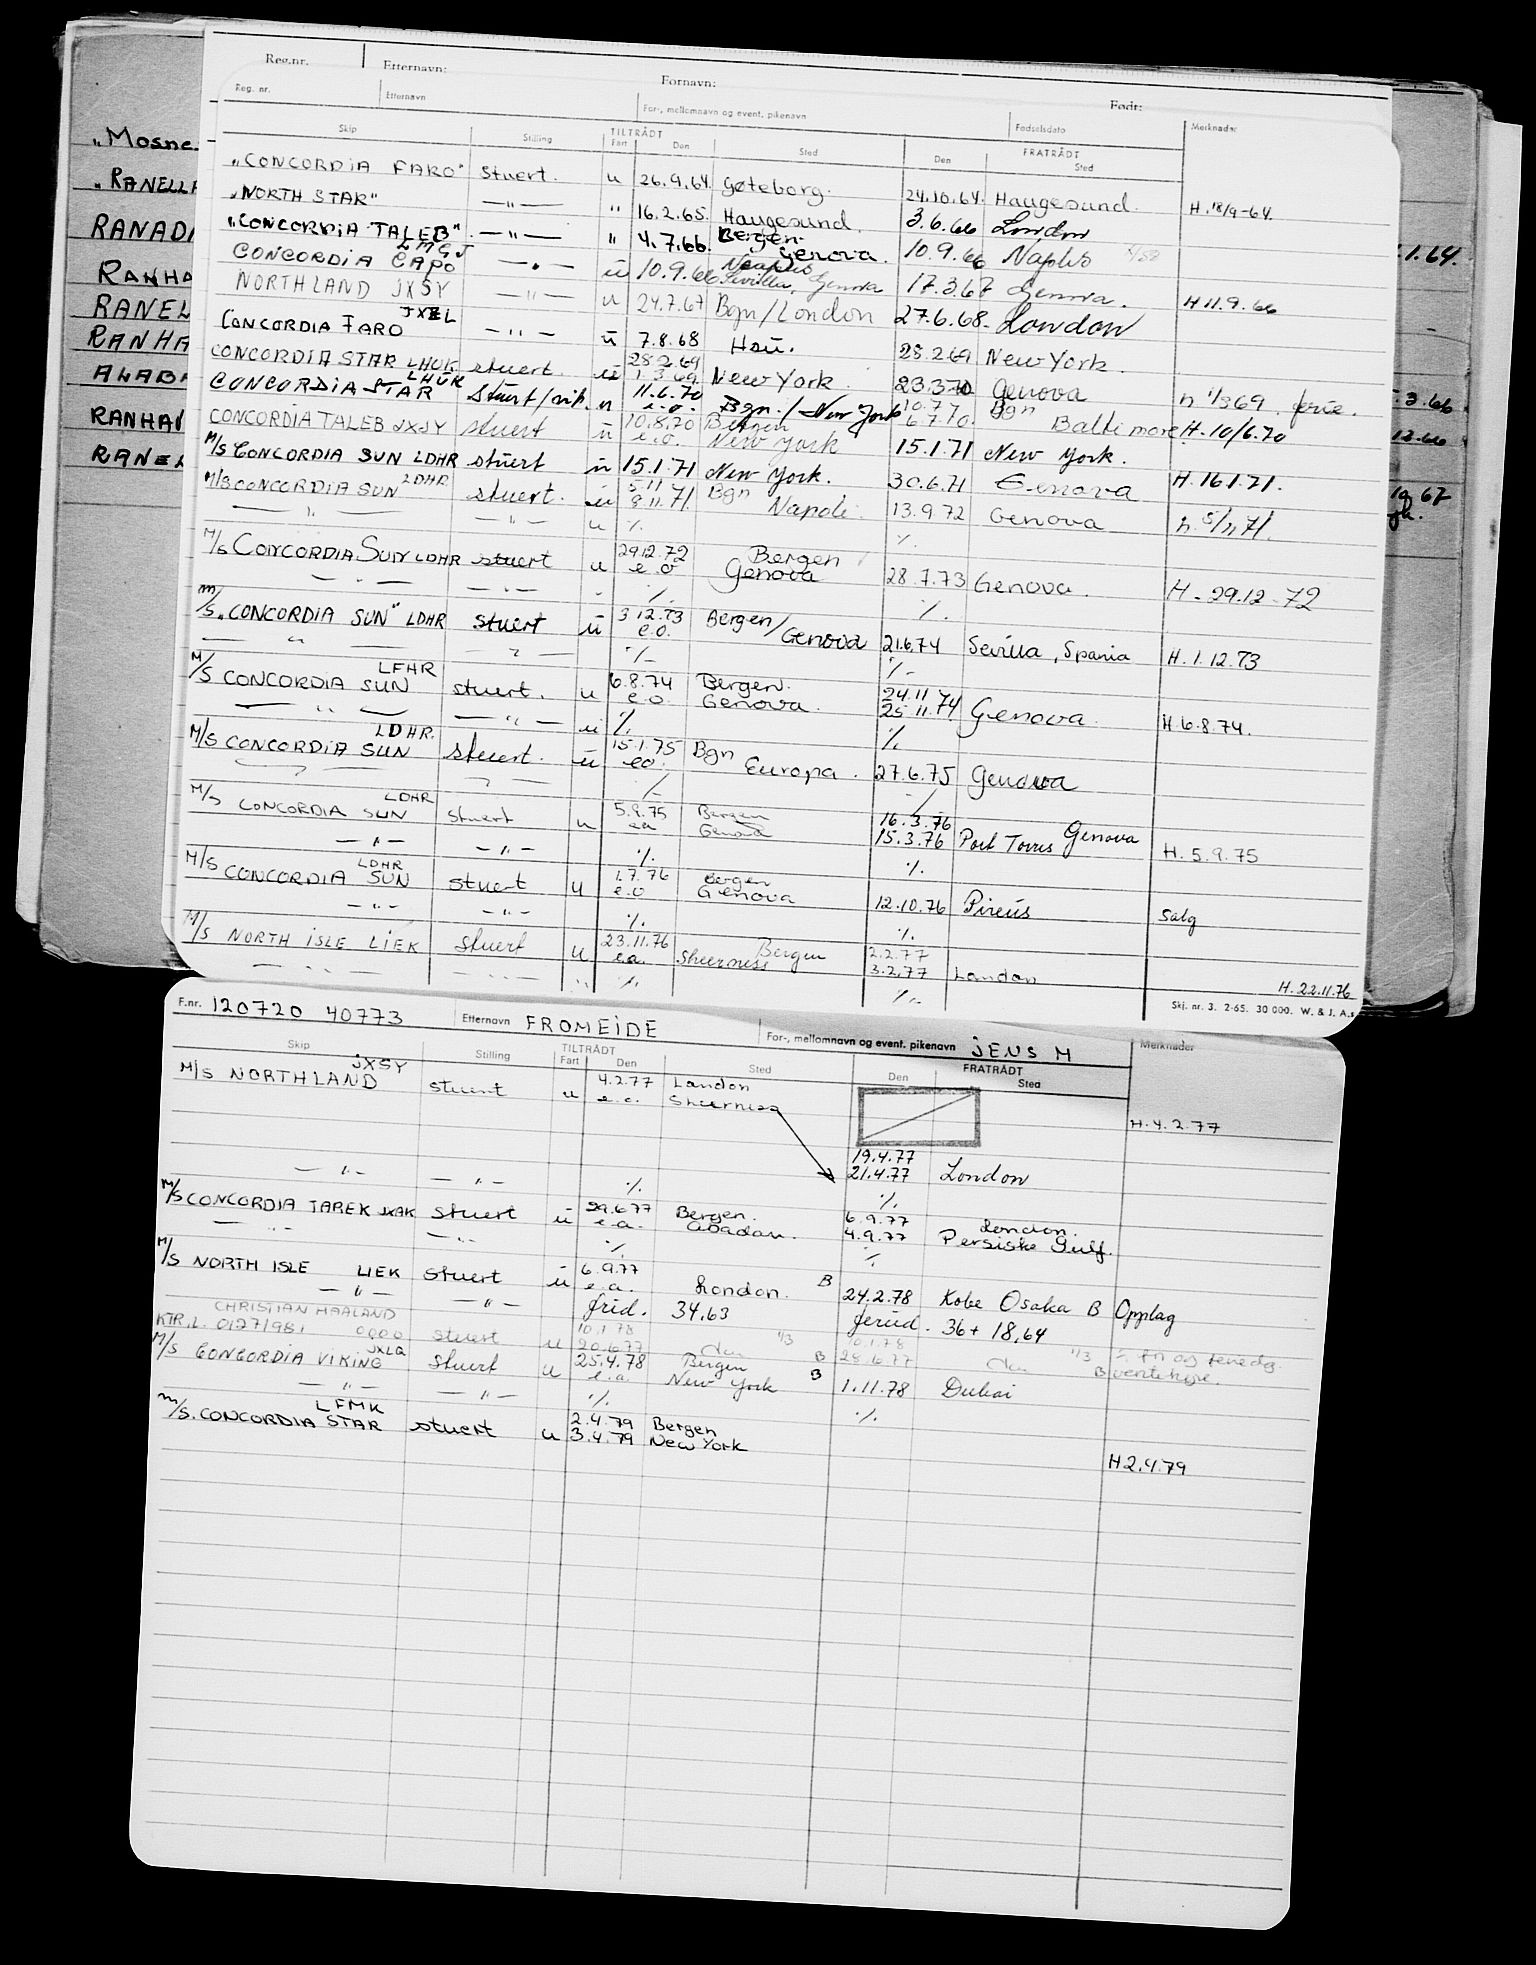 Reg.nr. Etternavn: Fornavn: Født:
Reg. nr. Etternavn For-, mellomnavn og event. pikenavn Fødselsdato Merknader
Skip Stilling TILTRÅDT FRATRÅDT
Fart Den Sted Den Sted
„CONCORDIA FARO" Stuert. u 26.9.64. Gøteborg. 24.10.64. Haugesund. H.18/9-64.
„NORTH STAR" —"— " 16.2.65. Haugesund. 3.6.66 London
„CONCORDIA TALEB" —"— " 4.7.66. Bergen. Genova. 10.9.66 Naples
LMGJ
CONCORDIA CAPO —"— ü 10.9.66 Genova 17.3.67 Genova. H 11.9.66
NORTHLAND JXSY —"— u 24.7.67 Bgn/London 27.6.68. London
JXEL
CONCORDIA FARO —"— ü 7.8.68 Hau. 28.2.69 New York.
CONCORDIA STAR LHUK stuert. ü 28.2.69 1.3.69 New York. 23.3.70 Genova h 1/3 69. ferie.
LHUK
CONCORDIA STAR Stuert/ u 11.6.70 e.o. Bgn./New York 10.7.70 6.7.70. Bgn Baltimore H. 10/6.70
CONCORDIA TALEB JXJY stuert ü 10.8.70 e.o. Bergen New York 15.1.71 New York.
M/S CONCORDIA SUN LDHR stuert ü 15.1.71 New York. 30.6.71 Genova H. 16.1.71.
M/S CONCORDIA SUN LDHR stuert. ü 5.11 9.11.71. Bgn Napoli. 13.9.72 Genova h. 5/11 71.
—"— —"— u %. %.
M/S CONCORDIA SUN LDHR stuert u 29.12.72 e.o Bergen Genova 28.7.73 Genova. H. 29.12-72
—"— —"— " %. %.
M/S. „CONCORDIA SUN" LDHR stuert ü 3.12.73 e.o. Bergen/Genova 21.6.74 Sevilla, Spania H. 1.12.73
—"— —"— %. %.
LFHR
M/S CONCORDIA SUN stuert. u 6.8.74 e.o. Bergen. Genova. 24.11 25.11.74 Genova. H 6.8.74.
—"— —"— ü %. %.
LDHR.
M/S CONCORDIA SUN stuert. ü 15.1.75 eo. Bgn Europa. 27.6.75 Genova
—"— —"— %. %.
LDHR
M/S CONCORDIA SUN stuert u 5.9.75 ea Bergen Genova 16.3.76 15.3.76 Port Torres Genova H. 5.9.75
—"— —"— %. %.
LDHR
M/S CONCORDIA SUN stuert u 1.7.76 e.o Bergen Genova 12.10.76 Pireüs salg
—"— —"— %. %.
M/S NORTH ISLE LIEK stuert u 23.11.76 e.a. Bergen Sheerness 2.2.77 3.2.77 London H. 22.11.76
—"— —"— " %. %.
Skj. nr. 3. 2-65. 30 000. W. & J. A.s
„Mosne
„RANELLA
RANADA
RANHA
RANEL
RANHA
ALABA
RANHA
RANEL
.1.64.
.3.66
12.66
67
F.nr. 120720 40773 Etternavn FROMEIDE For-, mellomnavn og event. pikenavn JENS M Merknader
Skip Stilling TILTRÅDT FRATRÅDT
Fart Den Sted Den Sted
JXSY
M/S NORTHLAND stuert u 4.2.77 e.o. London Sheerness H. 4.2.77
19.4.77 21.4.77 London
—"— —"— %. %.
M/S CONCORDIA TAREK JXAK stuert ü 29.6.77 e.a. Bergen. Abadan. 6.9.77 4.9.77 London. Persiske Gulf.
—"— —"— %. %.
M/S NORTH ISLE LIEK stuert ü 6.9.77 e.a. London. B 24.2.78 Kobe Osaka B Opplag
—"— —"— frid. 34,63 ferud. 36+18,64
CHRISTIAN HAALAND
KTR.L. 01271981 0900 stuert u 10.1.78 20.6.77 1/3 B 10.1.78 28.6.77 1/3 B fri og feriedg. ventehyre.
JXLQ
M/S CONCORDIA VIKING stuert u 25.4.78 e.a. Bergen New York B 1.11.78 Dubai
—"— —"— %. %.
LFMK
M/S. CONCORDIA STAR stuert u 2.4.79 3.4.79 Bergen New York H 2.4.79